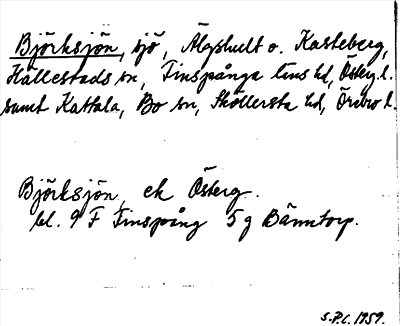 Björksjön, sjö, Älgshult o. Kasteberg,
Hällestads sn, Finspånga läns hd, Österg. l.
samt Kattala, Bo sn, Sköllersta hd, Örebro l.
Björksjön, ek Österg.
bl. 9 F Finspång 5 g Bänntorp.
S.P.L. 1959.